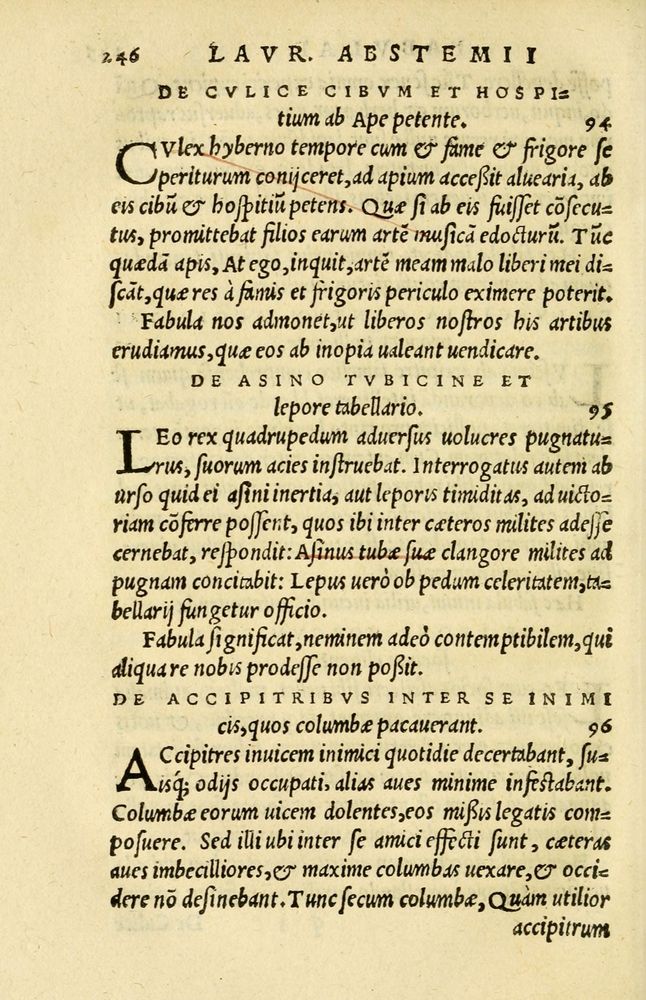 246 LAVR. ABSTEMII
DE CVLICE CIBVM ET HOSPI=
tium ab Ape petente. 94
CVlex hyberno tempore cum & fame & frigore se
periturum conijceret, ad apium acceßit aluearia, ab
eis cibũ & hospitiũ petens. Quæ si ab eis fuisset cõsecu=
tus, promittebat filios earum artẽ musicã edocturũ. Tũc
quædã apis, At ego, inquit, artẽ meam malo liberi mei di=
scãt, quæ res à famis et frigoris periculo eximere poterit.
Fabula nos admonet, ut liberos nostros his artibus
erudiamus, quæ eos ab inopia ualeant uendicare.
DE ASINO TVBICINE ET
lepore tabellario. 95
LEo rex quadrupedum aduersus uolucres pugnatu=
rus, suorum acies instruebat. Interrogatus autem ab
urso quid ei asini inertia, aut leporis timiditas, ad uicto=
riam cõferre possent, quos ibi inter cæteros milites adesse
cernebat, respondit: Asinus tubæ suæ clangore milites ad
pugnam concitabit: Lepus uerò ob pedum celeritatem, ta=
bellarij fungetur officio.
Fabula significat, neminem adeò contemptibilem, qui
aliqua re nobis prodesse non poßit.
DE ACCIPITRIBVS INTER SE INIMI
cis, quos columbæ pacauerant. 96
ACcipitres inuicem inimici quotidie decertabant, su=
isq; odijs occupati, alias aues minime infestabant.
Columbæ eorum uicem dolentes, eos mißis legatis com=
posuere. Sed illi ubi inter se amici effecti sunt, cæteras
aues imbecilliores, & maxime columbas uexare, & occi=
dere nõ desinebant. Tunc secum columbæ, Quàm utilior
accipitrum